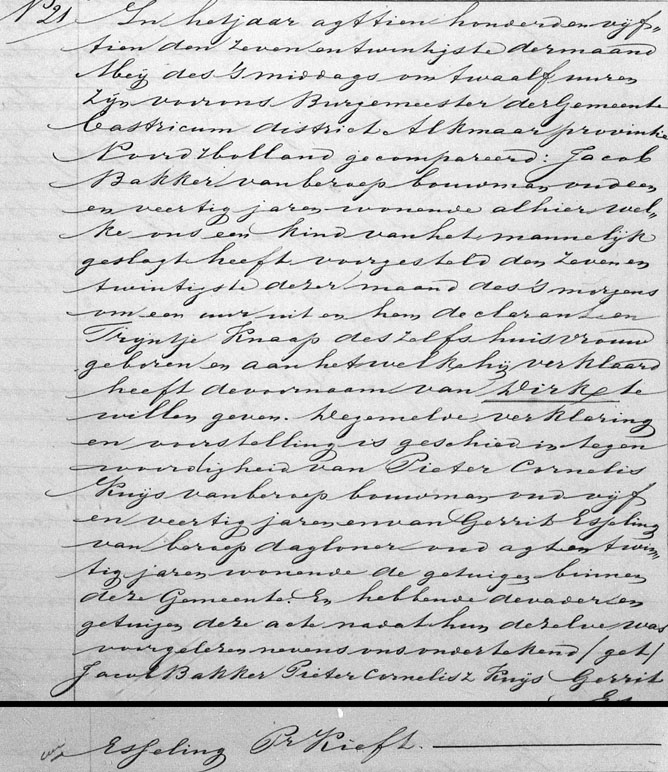 No 21
In het jaar agttien honderd en vijf„
tien den zeven en twintigste der maand
Meÿ des 's middags om twaalf uuren
Zÿn voor ons Burgemeester der Gemeente
Castricum district Alkmaar provintie
Noord Holland gecompareerd: Jacob
Bakker van beroep bouwman oud een
en veertig jaren wonende alhier wel„
ke ons een kind van het mannelÿk
geslagt heeft voorgesteld den zeven en
twintigste dezer maand des 's morgens
om een uur uit en hem declarant en
Tryntje Knaap deszelfs huisvrouw
geboren en aan het welke hij verklaard
heeft de voornaam van Dirk te
willen geven. De gemelde verklaring
en voorstelling is geschied in tegen
woordigheid van Pieter Cornelis
Kuÿs van beroep bouwman oud vijf
en veertig jaren en van Gerrit Esseling
van beroep dagloner oud agt en twin„
tig jaren wonende de getuigen binnen
deze Gemeente. En hebbende de vader en
getuijen deze acte nadat hun dezelve was
voorgelezen nevens ons ondertekend /get/
Jacob Bakker Pieter Cornelisz Kuÿs Gerrit
Esseling Pr Kieft.